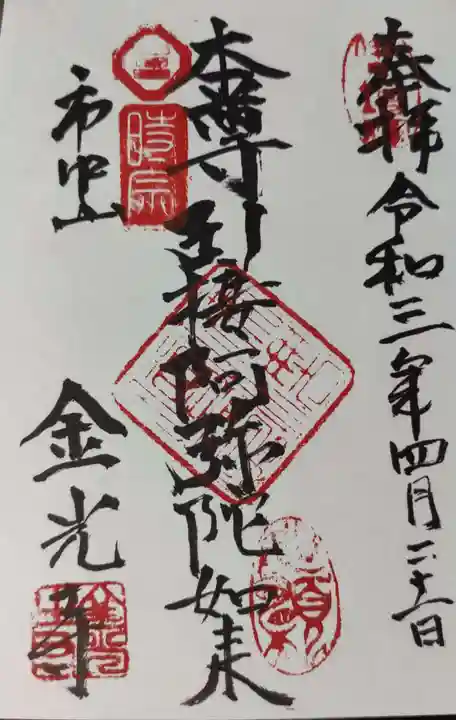 奉拝 令和三年四月二十一日
本尊 引接阿弥陀如来
時宗
市中山 金光寺